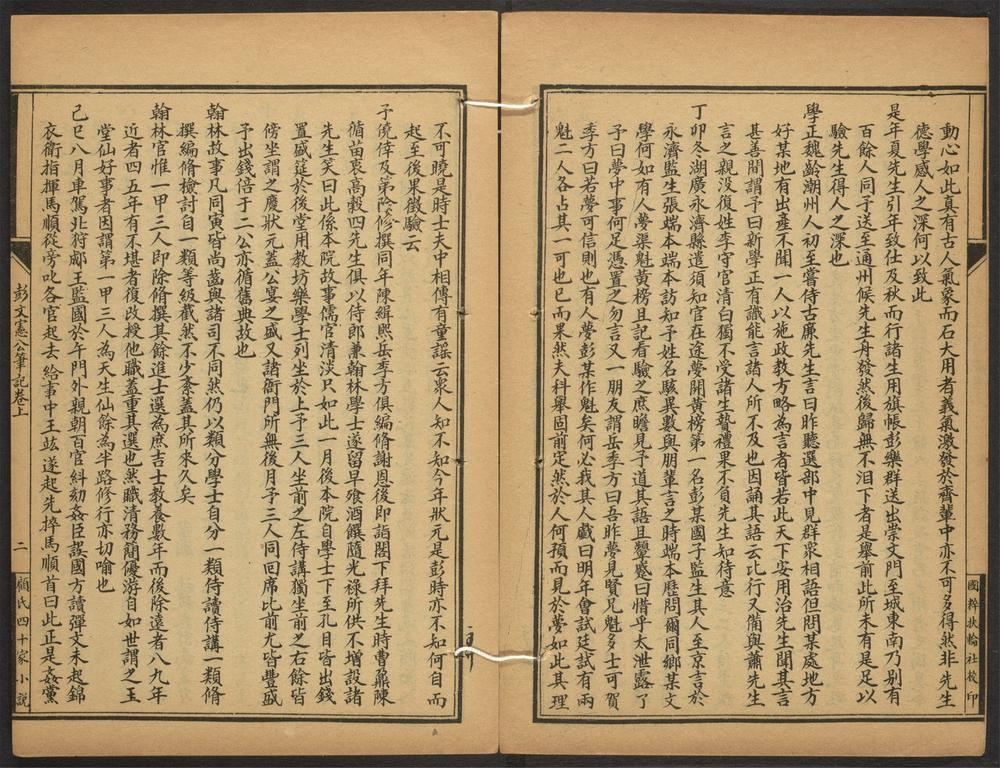 動心如此真有古人氣象而石大用者義氣激發於齊輩中亦不可多得然非先生
德學感人之深何以致此
是年夏先生引年致仕及秋而行諸生用旗帳彭樂群送出崇文門至城東南乃别有
百餘人同予送至通州候先生舟發然後歸無不泪下者是舉前此所未有是足以
驗先生得人之深也
學正魏齡潮州人初至嘗侍古廉先生言曰昨聽選部中見群衆相語但問某處地方
好某地有出產不聞一人以施政教方略為言者皆若此天下安用治先生聞其言
甚善間謂予曰新學正有識能言諸人所不及也因誦其語云比行又備與蕭先生
言之親没復姓李守官清白獨不受諸生贄禮果不負先生知待意
丁卯冬湖廣永濟縣遣須知官在途夢開黃榜第一名彭某國子監生其人至京言於
永濟監生張端本端本訪知予姓名駭異數與朋輩言之時端本歷問爾同鄉某文
學何如有人夢渠魁黃榜且記看驗之庶瞻見予道其語且顰蹙曰惜乎太泄露了
予曰夢中事何足憑置之勿言又一朋友謂岳季方曰吾昨夢見賢兄魁多士可賀
季方曰若夢可信則也有人夢彭某作魁矣何必我其人戲曰明年會試廷試有兩
魁二人各占其一可也已而果然夫科舉固前定然於人何預而見於夢如此其理
國粹扶輪社校印
不可曉是時士夫中相傳有童謡云衆人知不知今年狀元是彭時亦不知何自而
起至後果徵驗云
予僥倖及第除修撰同年陳緝熙岳季方俱編脩謝恩後即詣閣下拜先生時曹鼐陳
循苗衷高穀四先生俱以侍郎兼翰林學士遂留早飱酒饌隨光祿所供不增設諸
先生笑曰此係本院故事儒官清淡只如此一月後本院自學士下至孔目皆出錢
置盛筵於後堂用教坊樂學士列坐於上予三人坐前之左侍講獨坐前之右餘皆
傍坐謂之慶狀元蓋公宴之盛又諸衙門所無後月予三人同回席比前尤皆豐盛
予出錢倍于二公亦循舊典故也
翰林故事凡同寅皆尚齒與諸司不同然仍以類分學士自分一類侍讀侍講一類脩
撰編脩檢討自一類等級截然不少紊蓋其所來久矣
翰林官惟一甲三人即除脩撰其餘進士選為庶吉士教養數年而後除遠者八九年
近者四五年有不堪者復改授他職蓋重其選也然職清務簡優游自如世謂之玉
堂仙好事者因謂第一甲三人為天生仙餘為半路修行亦切喻也
己巳八月車駕北狩郕王監國於午門外親朝百官糾劾姦臣誤國方讀彈文未起錦
衣衛指揮馬順從旁叱各官起去給事中王竑遂起先捽馬順首曰此正是姦黨
彭文憲公筆記卷上
二
顧氏四十家小説